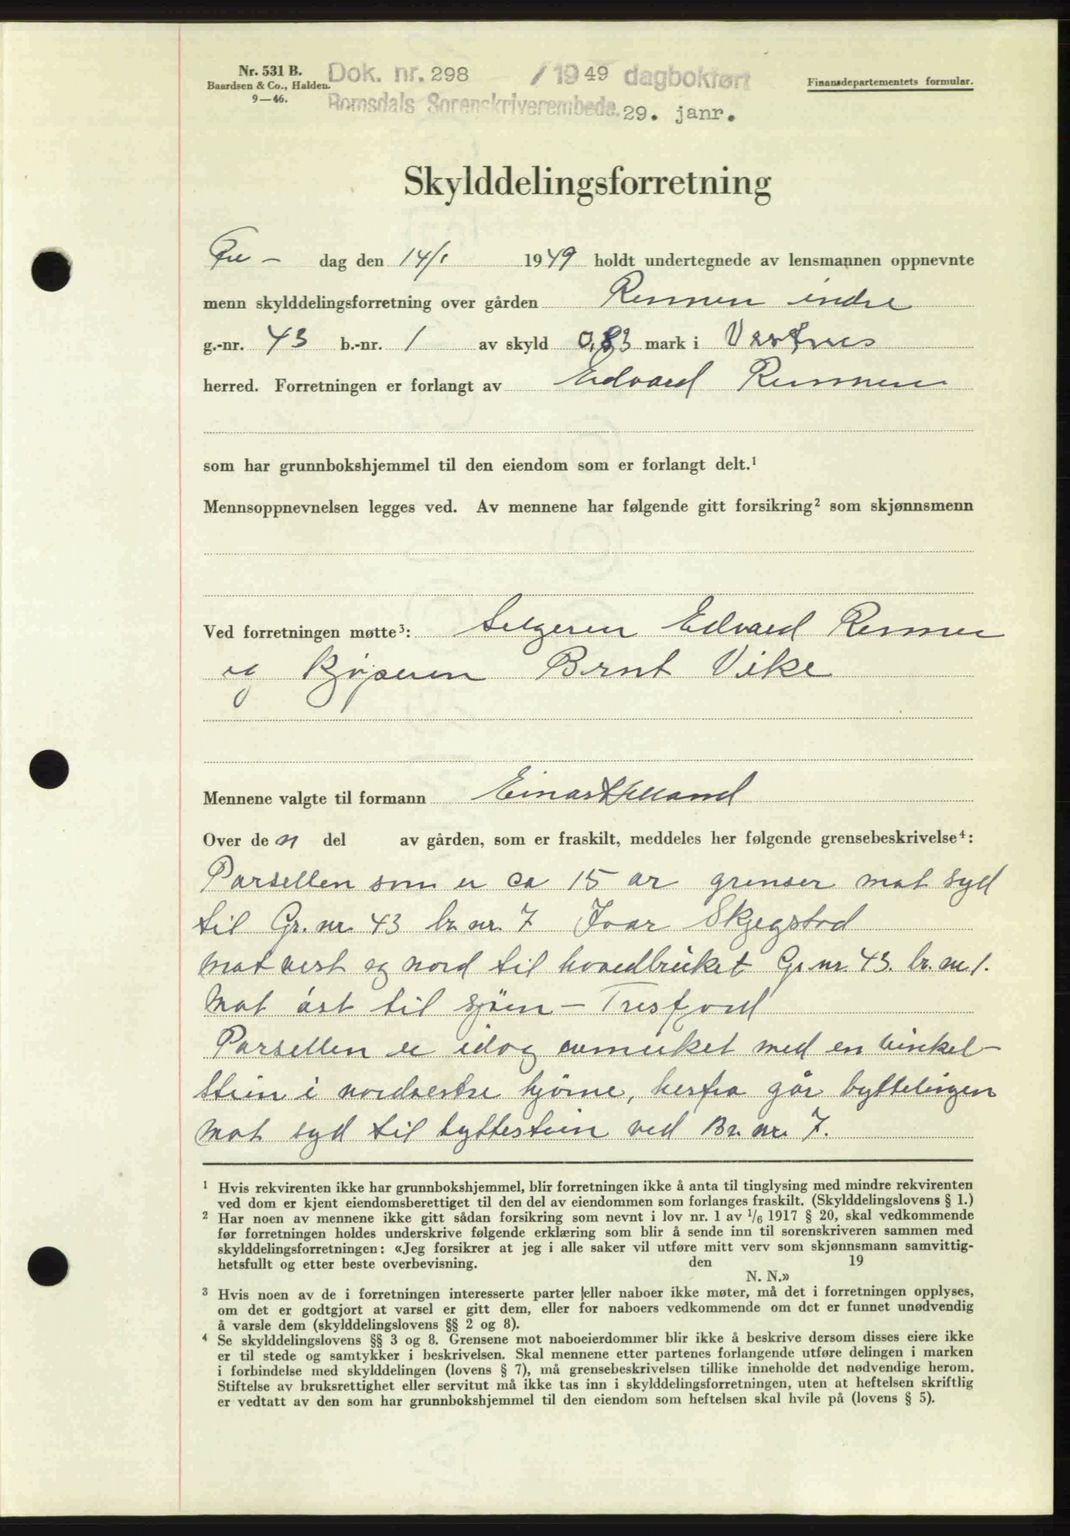 Nr. 531 B.
Baardsen & Co., Halden.
9—46.
Dok. nr. 298 /1949 dagbokført
Romsdals Sorenskriverembede. 29. janr.
Finansdepartementets formular.
Skylddelingsforretning
Fre- dag den 14/1 1949 holdt undertegnede av lensmannen oppnevnte
menn skylddelingsforretning over gården Remmen indre
g.-nr. 43 b.-nr. 1 av skyld 0,83 mark i Vestnes
herred. Forretningen er forlangt av Edvard Remmen
som har grunnbokshjemmel til den eiendom som er forlangt delt.¹
Mennsoppnevnelsen legges ved. Av mennene har følgende gitt forsikring² som skjønnsmenn
Ved forretningen møtte³: Selgeren Edvard Remmen
og kjøperen Brnt Vike
Mennene valgte til formann Einar Helland
Over de n del av gården, som er fraskilt, meddeles her følgende grensebeskrivelse⁴:
Parsellen som er ca 15 ar grenser mot syd
til Gr. nr. 43 br. nr. 7 Ivar Skjegstad
mot vest og nord til hovedbruket Gr. nr. 43. br. nr. 1.
Mot øst til sjøen - Tresfjord
Parsellen er idag avmerket med en vinkel-
stein i nordvestre hjørne, herfra går byttelinjen
mot syd til byttestein ved Br. nr. 7.
¹ Hvis rekvirenten ikke har grunnbokshjemmel, blir forretningen ikke å anta til tinglysing med mindre rekvirenten
ved dom er kjent eiendomsberettiget til den del av eiendommen som forlanges fraskilt. (Skylddelingslovens § 1.)
² Har noen av mennene ikke gitt sådan forsikring som nevnt i lov nr. 1 av 1/6 1917 § 20, skal vedkommende
før forretningen holdes underskrive følgende erklæring som blir å sende inn til sorenskriveren sammen med
skylddelingsforretningen: «Jeg forsikrer at jeg i alle saker vil utføre mitt verv som skjønnsmann samvittig-
hetsfullt og etter beste overbevisning. den 19
N. N.»
³ Hvis noen av de i forretningen interesserte parter eller naboer ikke møter, må det i forretningen opplyses,
om det er godtgjort at varsel er gitt dem, eller for naboers vedkommende om det er funnet unødvendig
å varsle dem (skylddelingslovens §§ 2 og 8).
⁴ Se skylddelingslovens §§ 3 og 8. Grensene mot naboeierdommer blir ikke å beskrive dersom disses eiere ikke
er til stede og samtykker i beskrivelsen. Skal mennene etter partenes forlangende utføre delingen i marken
i forbindelse med skylddelingen (lovens § 7), må grensebeskrivelsen tillike inneholde det nødvendige herom.
Stiftelse av bruksrettighet eller servitut må ikke tas inn i skylddelingsforretningen, uten at heftelsen skriftlig
er vedtatt av den som har grunnbokshjemmel til den eiendom som heftelsen skal hvile på (lovens § 5).